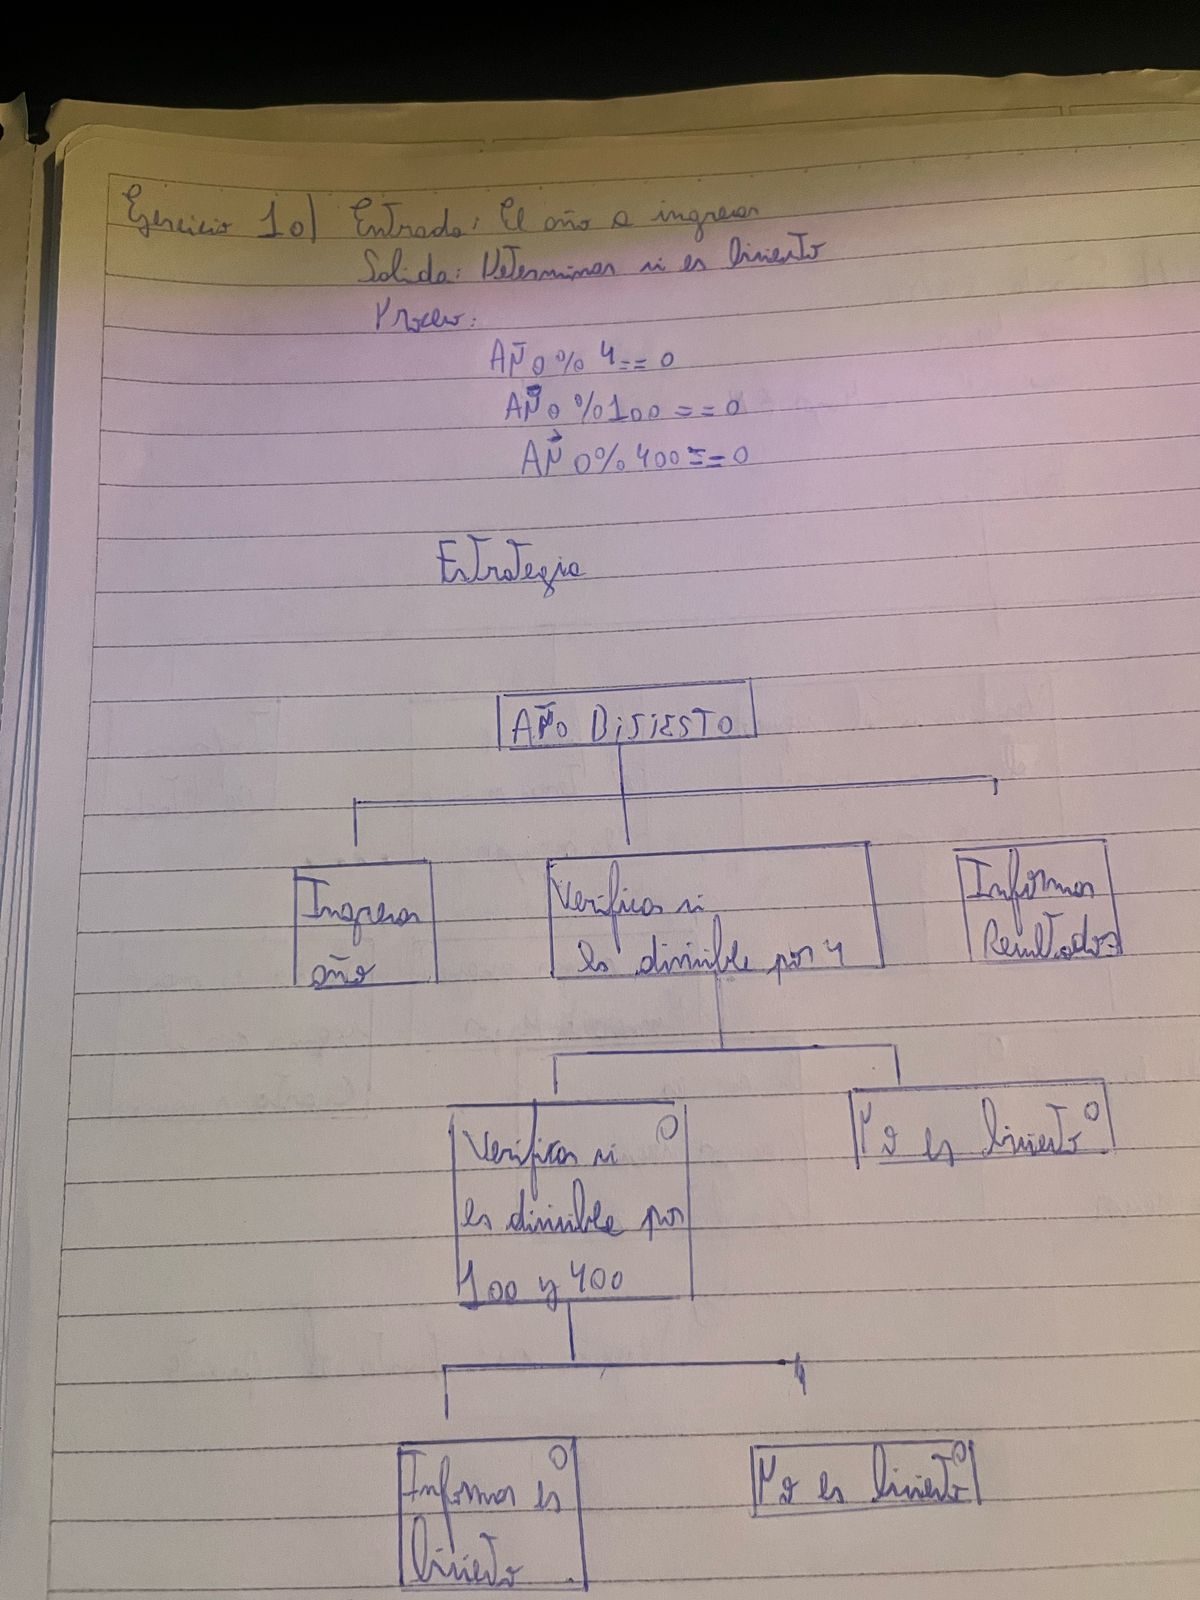 Ejercicio 10) Entrada: El año a ingresar
Salida: Determinar si es bisiesto
Proceso:
AÑO % 4 == 0
AÑO % 100 == 0
AÑO % 400 == 0
Estrategia
AÑO BISIESTO
Ingresar
año
Verificar si
es divisible por 4
Informar
Resultados
Verificar si
es divisible por
100 y 400
No es bisiesto
Informar es
bisiesto
No es bisiesto